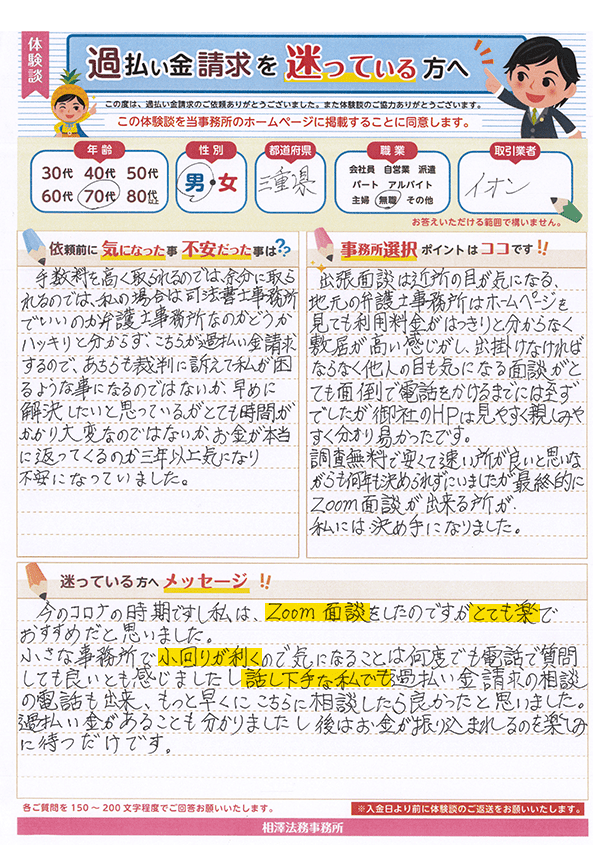 体験談
過払い金請求を迷っている方へ
この度は、過払い金請求のご依頼ありがとうございました。また体験談のご協力ありがとうございます。
この体験談を当事務所のホームページに掲載することに同意します。
年齢
30代 40代 50代
60代 70代 80代以上
性別
男・女
都道府県
三重県
職業
会社員 自営業 派遣
パート アルバイト
主婦 無職 その他
取引業者
イオン
お答えいただける範囲で構いません。
依頼前に気になった事 不安だった事は??
手数料を高く取られるのでは、余分に取ら
れるのでは、私の場合は司法書士事務所
でいいのか弁護士事務所なのかどうか
ハッキリと分からず、こちらが過払い金請求
するので、あちらも裁判に訴えて私が困
るような事になるのではないか、早めに
解決したいと思っているがとても時間が
かかり大変なのではないか、お金が本当
に返ってくるのか三年以上気になり
不安になっていました。
事務所選択 ポイントは ココです!!
出張面談は近所の目が気になる、
地元の弁護士事務所はホームページを
見ても利用料金がはっきりと分からなく
敷居が高い感じがし、出掛けなければ
ならなく他人の目も気になる面談がと
ても面倒で電話をかけるまでには至ず
でしたが御社のHPは見やすく親しみや
すく分かり易かったです。
調査無料で安くて速い所が良いと思いな
がらも何年も決められずにいましたが最終的に
Zoom面談が出来る所が、
私には決め手になりました。
迷っている方へ メッセージ!!
今のコロナの時期ですし私は、Zoom面談をしたのですがとても楽で
おすすめだと思いました。
小さな事務所で小回りが利くので気になることは何度でも電話で質問
しても良いとも感じましたし話し下手な私でも過払い金請求の相談
の電話も出来、もっと早くにこちらに相談したら良かったと思いました。
過払い金があることも分かりましたし後はお金が振り込まれるのを楽しみ
に待つだけです。
各ご質問を150〜200文字程度でご回答お願いいたします。
※入金日より前に体験談のご返送をお願いいたします。
相澤法務事務所